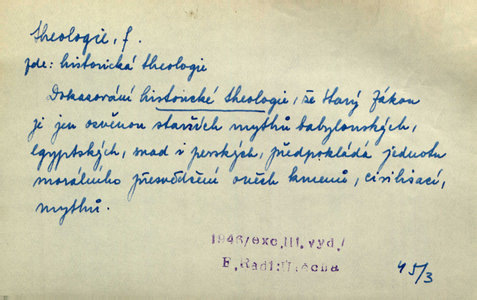 theologie, f.
zde: historická theologie
Dokazování historické theologie, že Starý Zákon
je jen ozvěnou starších mythů babylonských,
egyptských, snad i perských, předpokládá jednotu
morálního přesvědčení oněch kmenů, civilisací,
mythů.
1946/exc.III.vyd./
E.Rádl:Útěcha
45/3